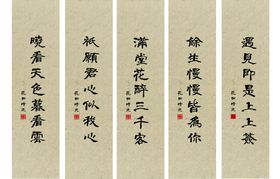 遇見即是上上簽
餘生慢慢皆為你
滿堂花醉三千客
祇願君心似我心
曉看天色暮看雲